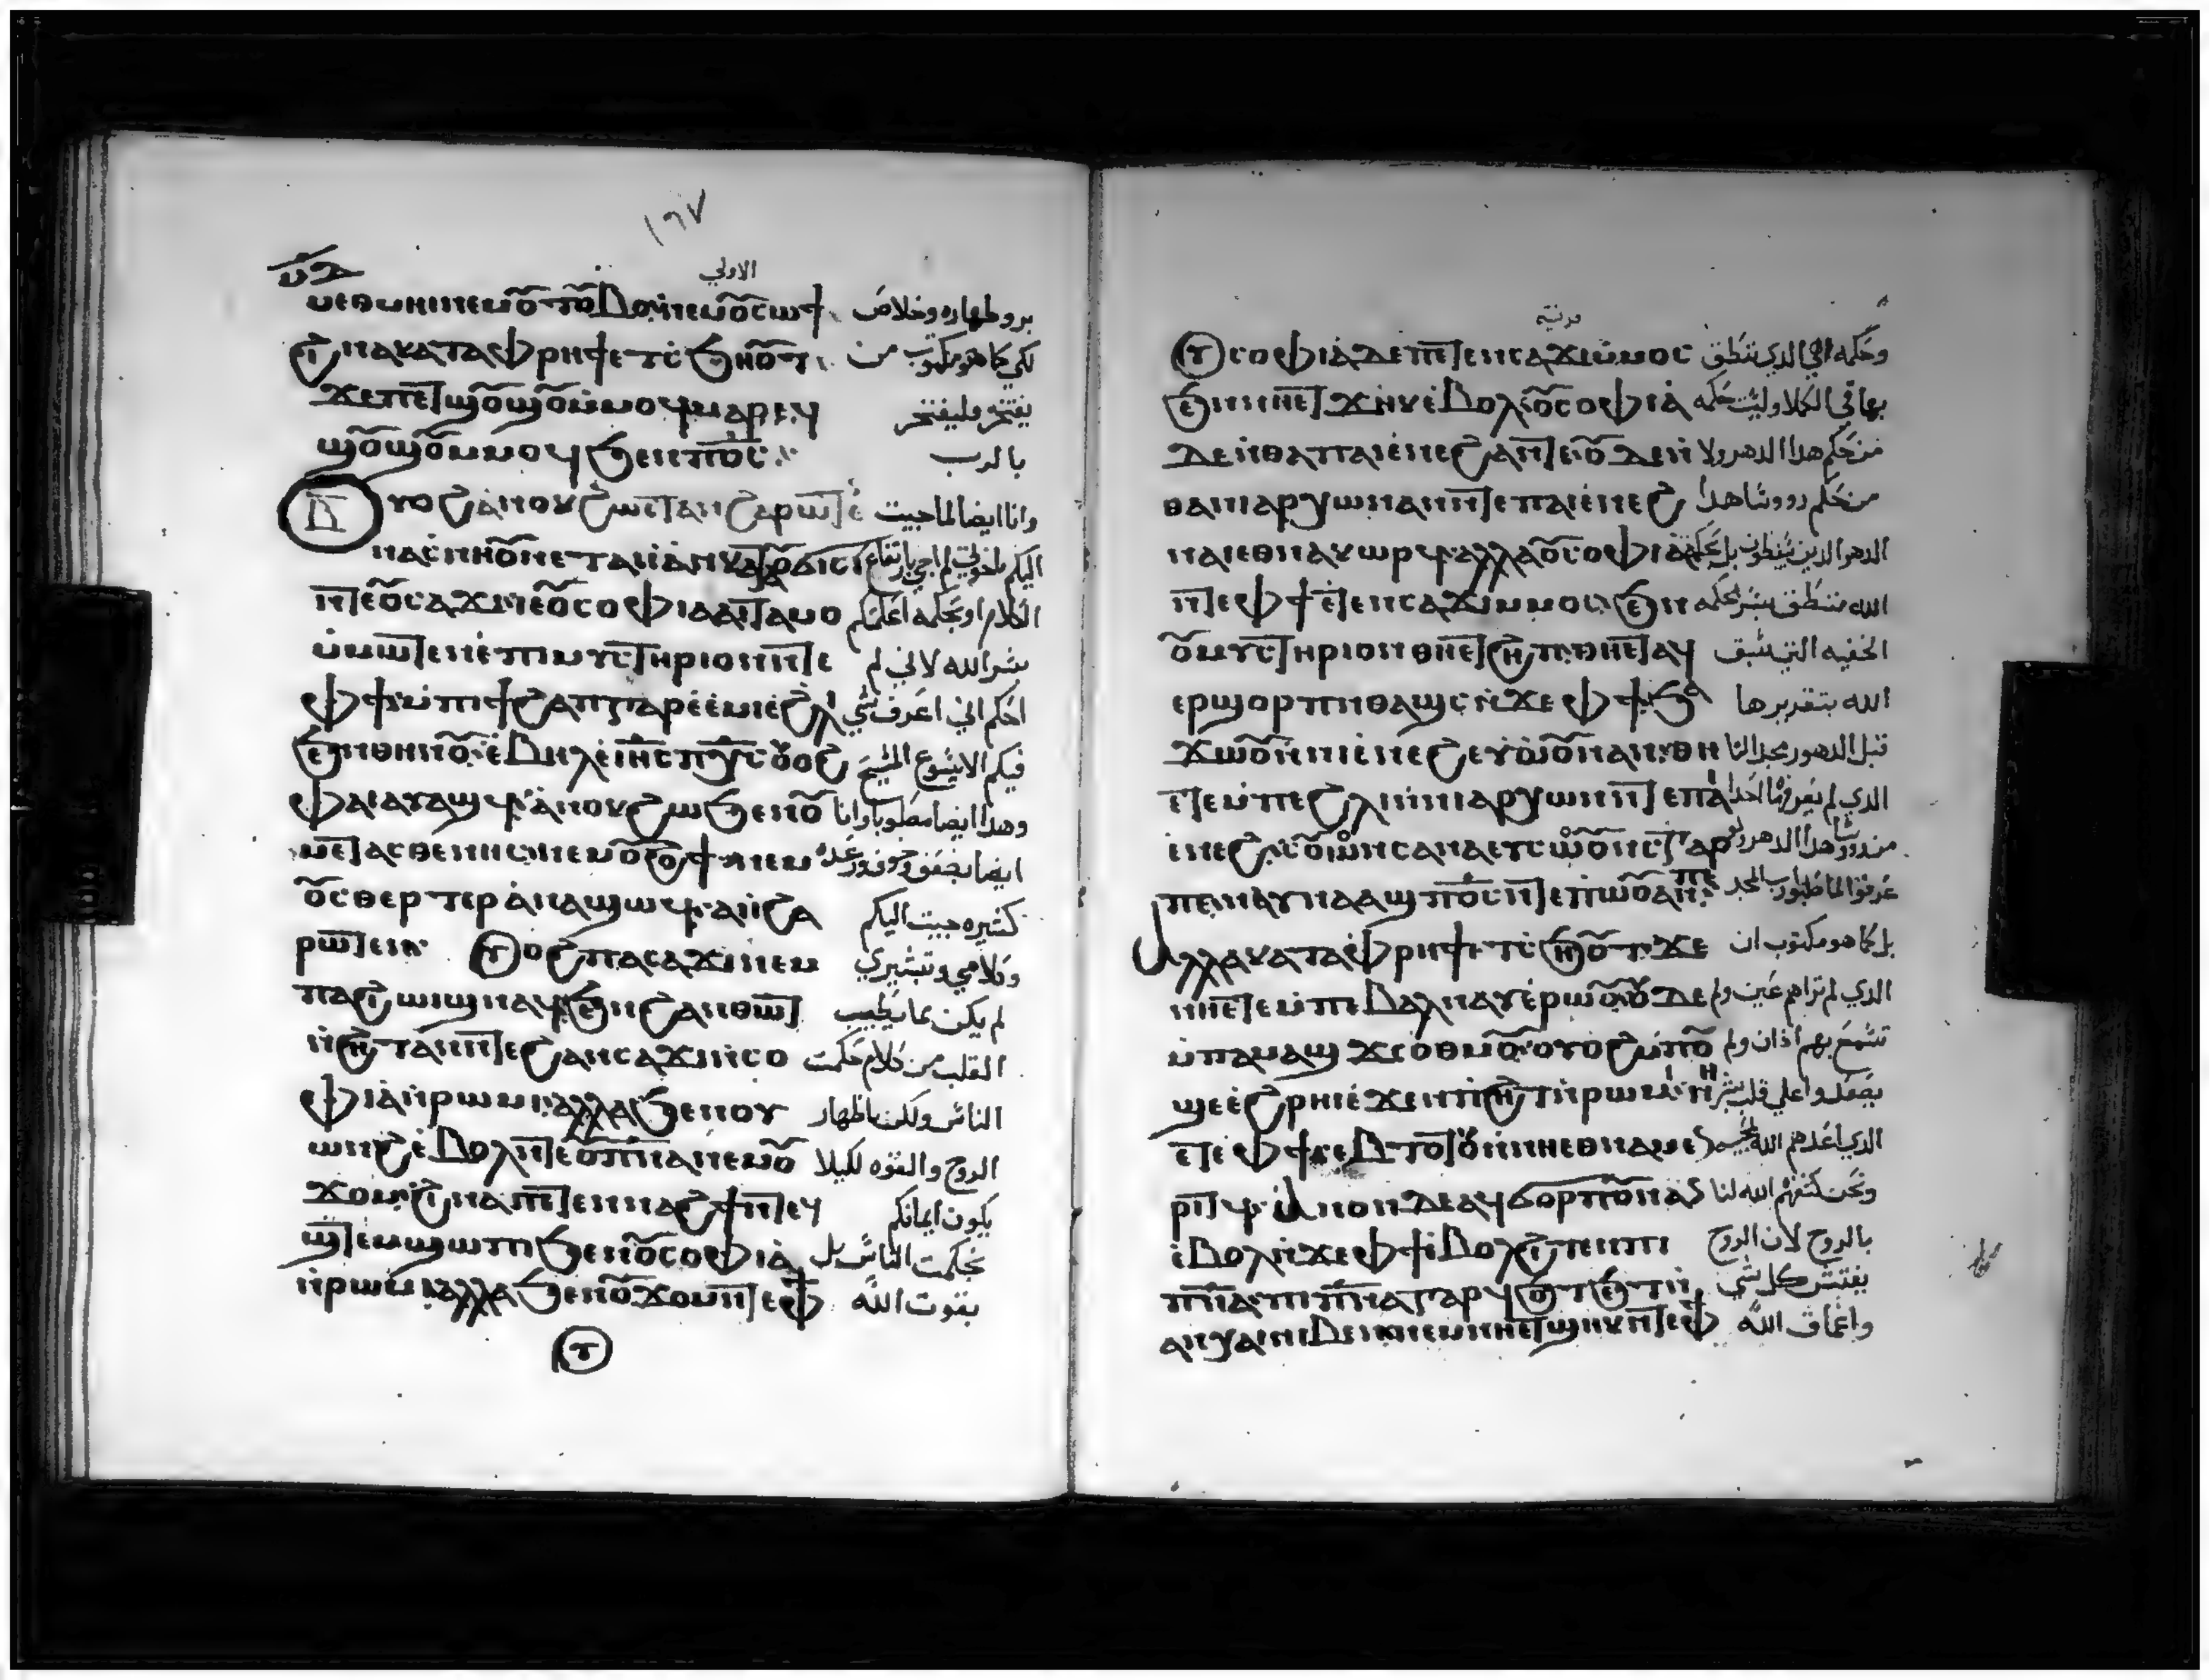 ١٦٧
الاولي
ⲙⲉⲑⲙⲏⲓ ⲛⲉⲙ ⲟⲩⲧⲟⲩⲃⲟ ⲛⲉⲙ ⲟⲩⲥⲱϯ بر وطهاره وخلاص
ϩⲓⲛⲁ ⲕⲁⲧⲁ ⲫⲣⲏϯ ⲉⲧⲥϧⲏⲟⲩⲧ لكي كما هو مكتوب من
ϫⲉ ⲡⲉⲧϣⲟⲩϣⲟⲩ ⲙⲙⲟϥ ⲙⲁⲣⲉϥ يفتخر فليفتخر
ϣⲟⲩϣⲟⲩ ⲙⲙⲟϥ ϧⲉⲛ ⲡⲟ̅ⲥ̅ بالرب
ⲟⲩⲟϩ ⲁⲛⲟⲕ ϩⲱ ⲉⲧⲁⲓ ϩⲁⲣⲱⲧⲉⲛ وانا ايضا لما جيت
ⲛⲁⲥⲛⲏⲟⲩ ⲛⲉⲧⲁⲓⲓ ⲁⲛ ⲕⲁⲧⲁ ⲟⲩϭⲓⲥⲓ اليكم ياخوتي لم اجي بارتفاع
ⲛⲧⲉ ⲟⲩⲥⲁϫⲓ ⲓⲉ ⲟⲩⲥⲟⲫⲓⲁ ⲁⲓⲧⲁⲙⲟ الكلام او بحكمه اعلمكم
ⲙⲙⲱⲧⲉⲛ ⲉⲡⲓⲙⲩⲥⲧⲏⲣⲓⲟⲛ ⲛⲧⲉ بسر الله لاني لم
ⲫϯ ⲙⲡⲓϯϩⲁⲡ ⲅⲁⲣ ⲉⲉⲙⲓ ⲉϩⲗⲓ احكم اني اعرف شي
ϧⲉⲛ ⲑⲏⲛⲟⲩ ⲉⲃⲏⲗ ⲉⲓⲏ̅ⲥ̅ ⲡⲭ̅ⲥ̅ ⲟⲩⲟϩ فيكم الا يسوع المسيح
ⲫⲁⲓ ⲁⲩⲁϣϥ ⲁⲛⲟⲕ ϩⲱ ϧⲉⲛ ⲟⲩ وهذا ايضا مصلوبا وانا
ⲙⲉⲧⲁⲥⲑⲉⲛⲏⲥ ⲛⲉⲙ ⲟⲩϩⲟϯ ⲛⲉⲙ ايضا بضعف وخوف ورعده
ⲟⲩⲥⲑⲉⲣⲧⲉⲣ ⲁⲛⲁϣⲱϥ ⲁⲓⲓ ϩⲁ كثيره جيت اليكم
ⲣⲱⲧⲉⲛ ⲟⲩⲟϩ ⲡⲁⲥⲁϫⲓ ⲛⲉⲙ وكلامي وتبشيري
ⲡⲁϩⲓⲱⲓϣ ⲛⲁϥϧⲉⲛ ϩⲁⲛⲑⲱⲧ لم يكن بما يطيب
ⲛϩⲏⲧ ⲁⲛ ⲛⲧⲉ ϩⲁⲛⲥⲁϫⲓ ⲛⲥⲟ القلب من كلام حكمت
ⲫⲓⲁ ⲛⲣⲱⲙⲓ ⲁⲗⲗⲁ ϧⲉⲛ ⲟⲩ الناس ولكن باظهار
ⲱⲛϩ ⲉⲃⲟⲗ ⲛⲧⲉ ⲟⲩⲡ̅ⲛ̅ⲁ̅ ⲛⲉⲙ ⲟⲩ الروح والقوه لكيلا
ϫⲟⲙ ϩⲓⲛⲁ ⲡⲉⲧⲉⲛⲛⲁϩϯ ⲛⲧⲉϥ يكون ايمانكم
ϣⲧⲉⲙϣⲱⲡⲓ ϧⲉⲛ ⲟⲩⲥⲟⲫⲓⲁ بحكمت الناس بل
ⲛⲣⲱⲙⲓ ⲁⲗⲗⲁ ϧⲉⲛ ⲟⲩϫⲟⲙ ⲛⲧⲉ ⲫϯ بقوت الله
ⲩ
ⲩⲥⲟⲫⲓⲁ ⲇⲉ ⲡⲉⲧⲉⲛⲥⲁϫⲓ ⲙⲙⲟⲥ وحكمه هي الذي ننطق
ϧⲉⲛ ⲛⲏ ⲉⲧϫⲏⲕ ⲉⲃⲟⲗ ⲟⲩⲥⲟⲫⲓⲁ بها في الكملا وليست حكمه
ⲇⲉ ⲛⲑⲁ ⲡⲁⲓⲉⲛⲉϩ ⲁⲛ ⲧⲉ ⲟⲩⲇⲉ ⲛ من حكم هذا الدهر ولا
ⲑⲁ ⲛⲓⲁⲣⲭⲱⲛ ⲁⲛ ⲛⲧⲉ ⲡⲁⲓⲉⲛⲉϩ من حكم رووسا هذا
ⲛⲁⲓ ⲉⲑⲛⲁⲕⲱⲣϥ ⲁⲗⲗⲁ ⲟⲩⲥⲟⲫⲓⲁ الدهر الذين يبطلون بل بحكمة
ⲛⲧⲉ ⲫϯ ⲉⲧⲉⲛⲥⲁϫⲓ ⲙⲙⲟⲥ ϧⲉⲛ الله ننطق بسر الحكمه
ⲟⲩⲙⲩⲥⲧⲏⲣⲓⲟⲛ ⲑⲏ ⲉⲧϩⲏⲡ ⲑⲏ ⲉⲧⲁϥ الخفيه التي سبق
ⲉⲣϣⲟⲣⲡ ⲛⲑⲁϣⲥ ⲛϫⲉ ⲫϯ ϧⲁ الله بتقريرها
ϫⲱⲟⲩ ⲛⲛⲓⲉⲛⲉϩ ⲉⲩⲱⲟⲩ ⲛⲁⲛ ⲑⲏ قبل الدهور مجد لنا
ⲉⲧⲉ ⲙⲡⲉ ϩⲗⲓ ⲛⲛⲓⲁⲣⲭⲱⲛ ⲛⲧⲉ ⲡⲁⲓ الذي لم يعرفها احدا
ⲉⲛⲉϩ ⲥⲟⲩⲱⲛⲥ ⲉⲛⲁⲩⲥⲟⲩⲱⲛⲥ ⲅⲁⲣ من رووسا هذا الدهر ولو
ⲡⲉ ⲛⲁⲩⲛⲁⲁϣ ⲡⲟ̅ⲥ̅ ⲛⲧⲉ ⲡⲱⲟⲩ ⲁⲛ ⲡⲉ عرفوا لما صلبوا رب المجد
ⲁⲗⲗⲁ ⲕⲁⲧⲁ ⲫⲣⲏϯ ⲉⲧⲥϧⲏⲟⲩⲧ ϫⲉ بل كما هو مكتوب ان
ⲛⲏ ⲉⲧⲉ ⲙⲡⲉ ⲃⲁⲗ ⲛⲁⲩ ⲉⲣⲱⲟⲩ ⲟⲩⲇⲉ الذي لم تراهم عين ولم
ⲙⲡⲉ ⲙⲁϣϫ ⲥⲟⲑⲙⲟⲩ ⲟⲩⲟϩ ⲙⲡⲟⲩ تسمع بهم اذان ولم
ϣⲉ ⲉϩⲣⲏⲓ ⲉϫⲉⲛ ⲡϩⲏⲧ ⲛⲣⲱⲙⲓ ⲛⲏ يصعدوا علي قلب بشر
ⲉⲧⲉ ⲫϯ ⲥⲉⲃⲧⲱⲧⲟⲩ ⲛⲛⲏ ⲉⲑⲛⲁⲙⲉⲛ الذي اعدهم الله لمحبيه
ⲣⲓⲧϥ ⲁⲛⲟⲛ ⲇⲉ ⲁϥϭⲟⲣⲡⲟⲩ ⲛⲁⲛ ونحن كشفهم الله لنا
ⲉⲃⲟⲗ ⲛϫⲉ ⲫϯ ⲉⲃⲟⲗ ϩⲓⲧⲉⲛ ⲡⲓ بالروح لان الروح
ⲡ̅ⲛ̅ⲁ̅ ⲡⲓⲡ̅ⲛ̅ⲁ̅ ⲅⲁⲣ ϥϧⲟⲧϧⲉⲧ ⲛ يفتش كل شي
ⲁⲛⲭⲁⲓ ⲛⲓⲃⲉⲛ ⲛⲉⲙ ⲛⲏ ⲉⲧϣⲏⲕ ⲛⲧⲉ ⲫϯ واعماق الله